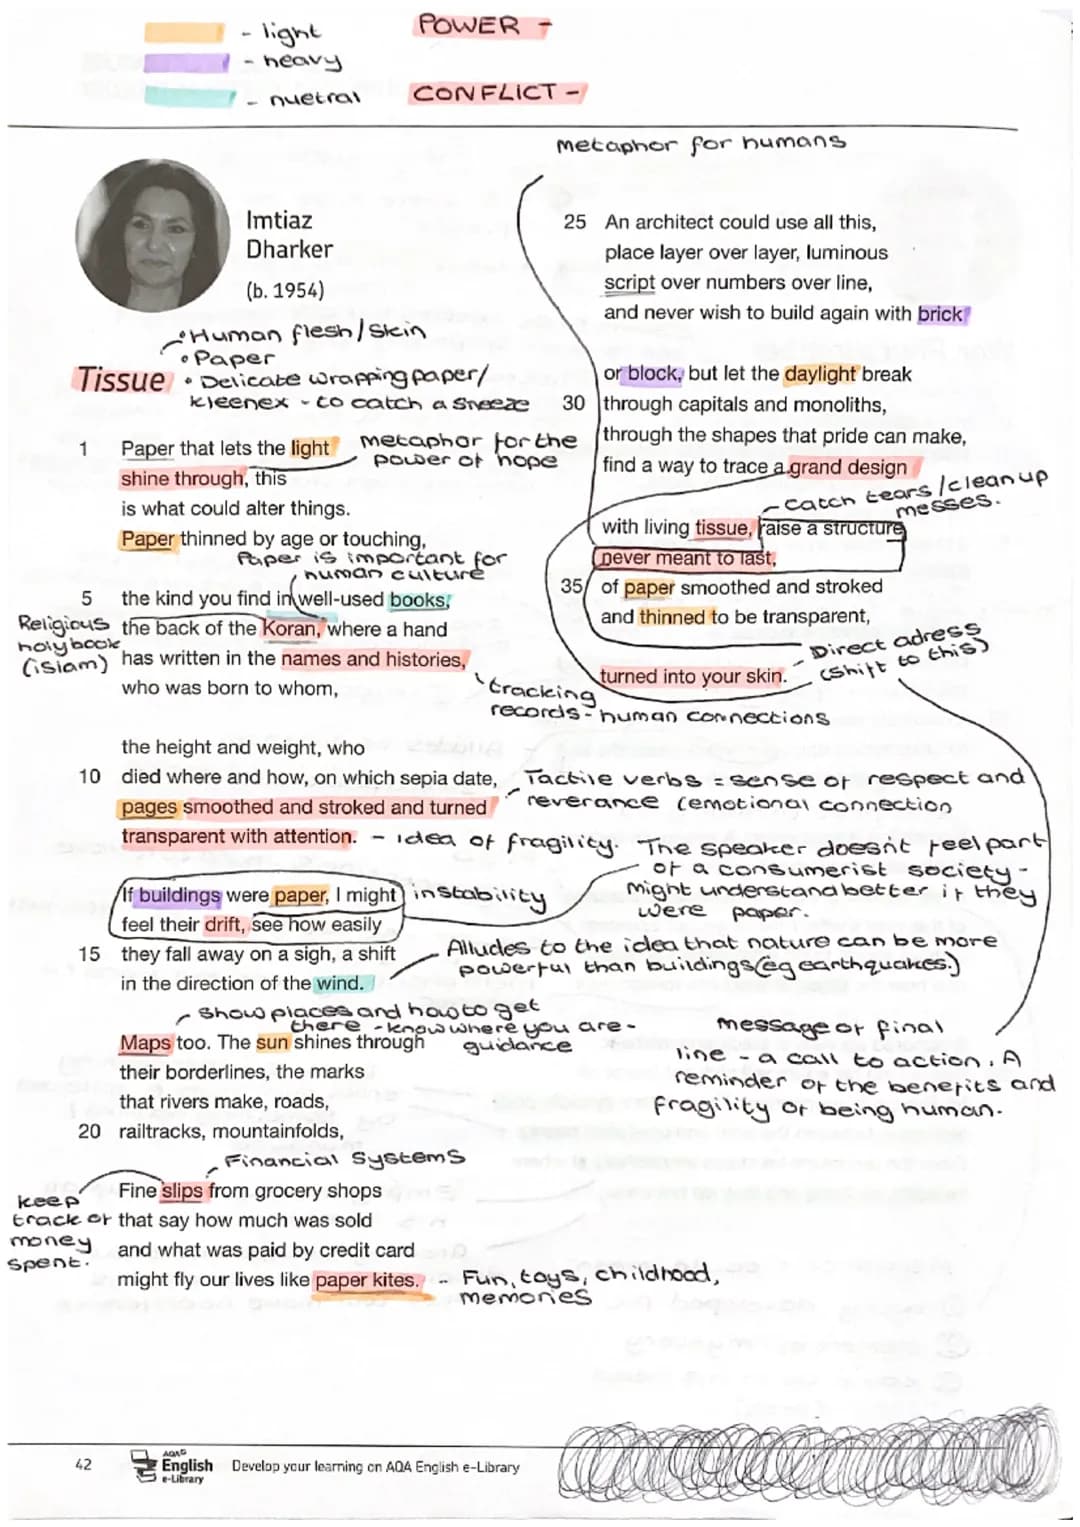 - light
- heavy
- nuetral
POWER -
CONFLICT -
metaphor for humans
Imtiaz
Dharker
(b. 1954)
• Human flesh/Skin
• Paper
• Delicate wrapping paper/
kleenex - to catch a sneeze
Tissue
1 Paper that lets the light
shine through, this
is what could alter things.
Paper thinned by age or touching,
metaphor for the
power of hope
Paper is important for
human culture
5 the kind you find in well-used books,
the back of the Koran, where a hand
has written in the names and histories,
who was born to whom,
Religious
holy book
(islam)
tracking
records - human connections
the height and weight, who
10 died where and how, on which sepia date,
pages smoothed and stroked and turned
transparent with attention.
Tactile verbs = sense of respect and
reverance (emotional connection
- idea of fragility.
The speaker doesnt feel part
of a consumerist society -
might understand better if they
were paper.
If buildings were paper, I might
feel their drift, see how easily
15 they fall away on a sigh, a shift
in the direction of the wind.
instability
Alludes to the idea that nature can be more
powerful than buildings (eg earthquakes.)
- Show places and how to get
there - know where you are -
guidance
Maps too. The sun shines through
their borderlines, the marks
that rivers make, roads,
20 railtracks, mountainfolds,
Financial Systems
Fine slips from grocery shops
that say how much was sold
and what was paid by credit card
might fly our lives like paper kites.
keep
track of
money
spent.
- Fun, toys, childhood,
memories
25 An architect could use all this,
place layer over layer, luminous
script over numbers over line,
and never wish to build again with brick
or block, but let the daylight break
30 through capitals and monoliths,
through the shapes that pride can make,
find a way to trace a grand design
- Catch tears/clean up
messes.
with living tissue, raise a structure
never meant to last,
35 of paper smoothed and stroked
and thinned to be transparent,
turned into your skin.
- Direct adress
(shift to this)
message of final
line - a call to action. A
reminder of the benefits and
fragility of being human.
42
AQA
English
e-Library
Develop your learning on AQA English e-Library